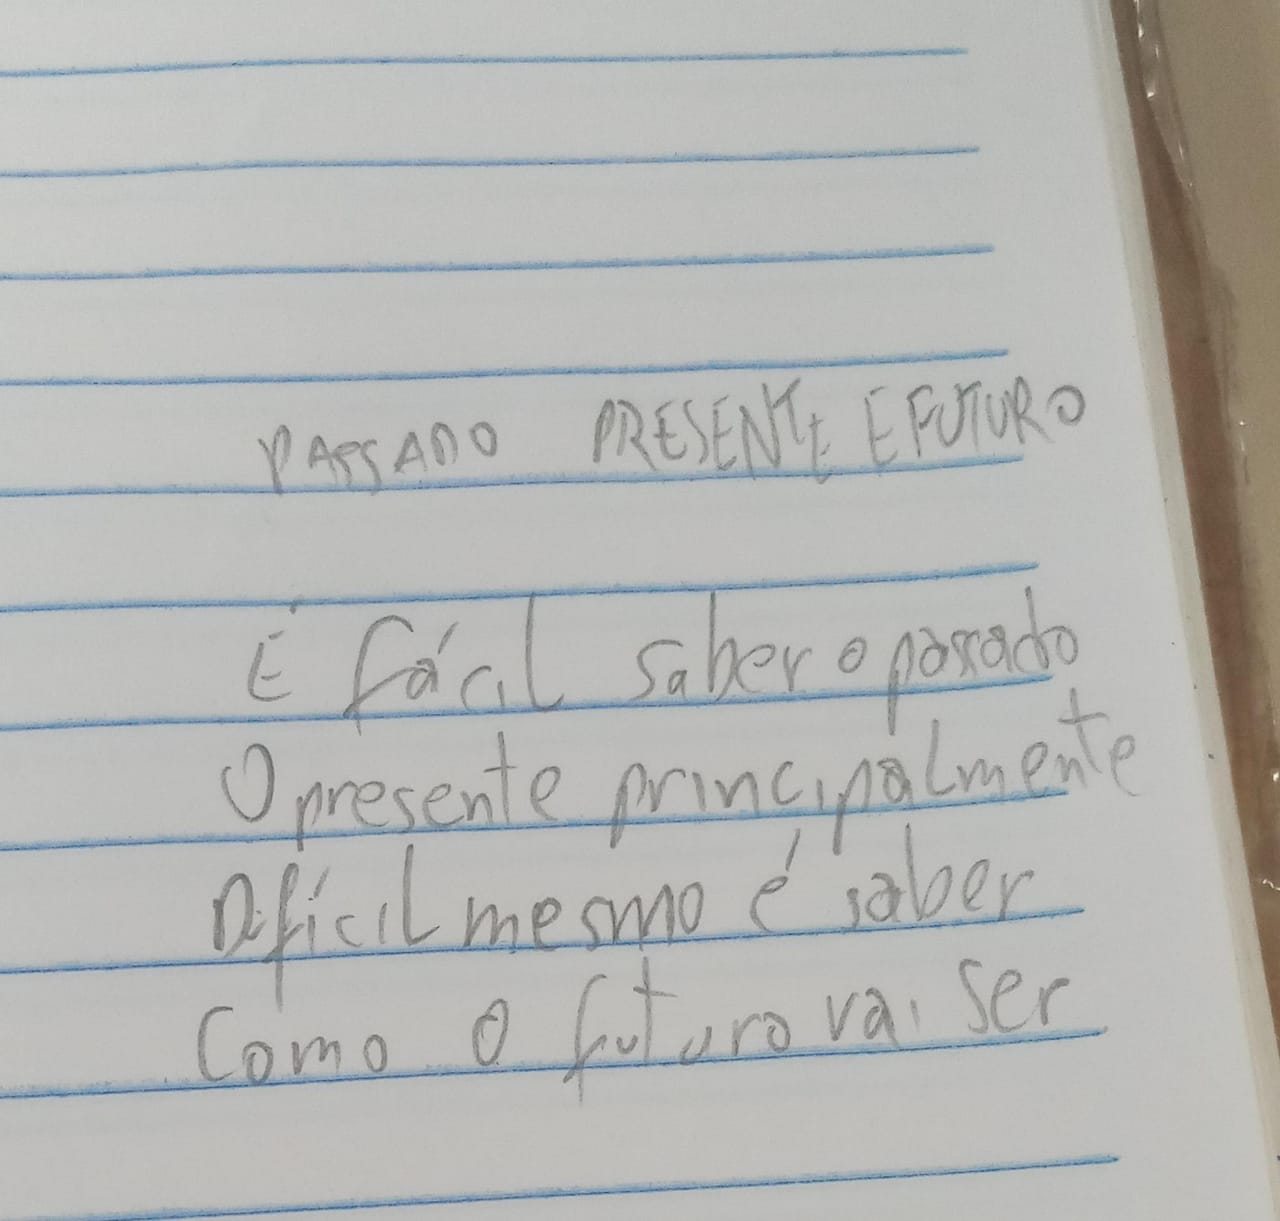 PASSADO PRESENTE E FUTURO
É fácil saber o passado
O presente principalmente
Difícil mesmo é saber
Como o futuro vai ser